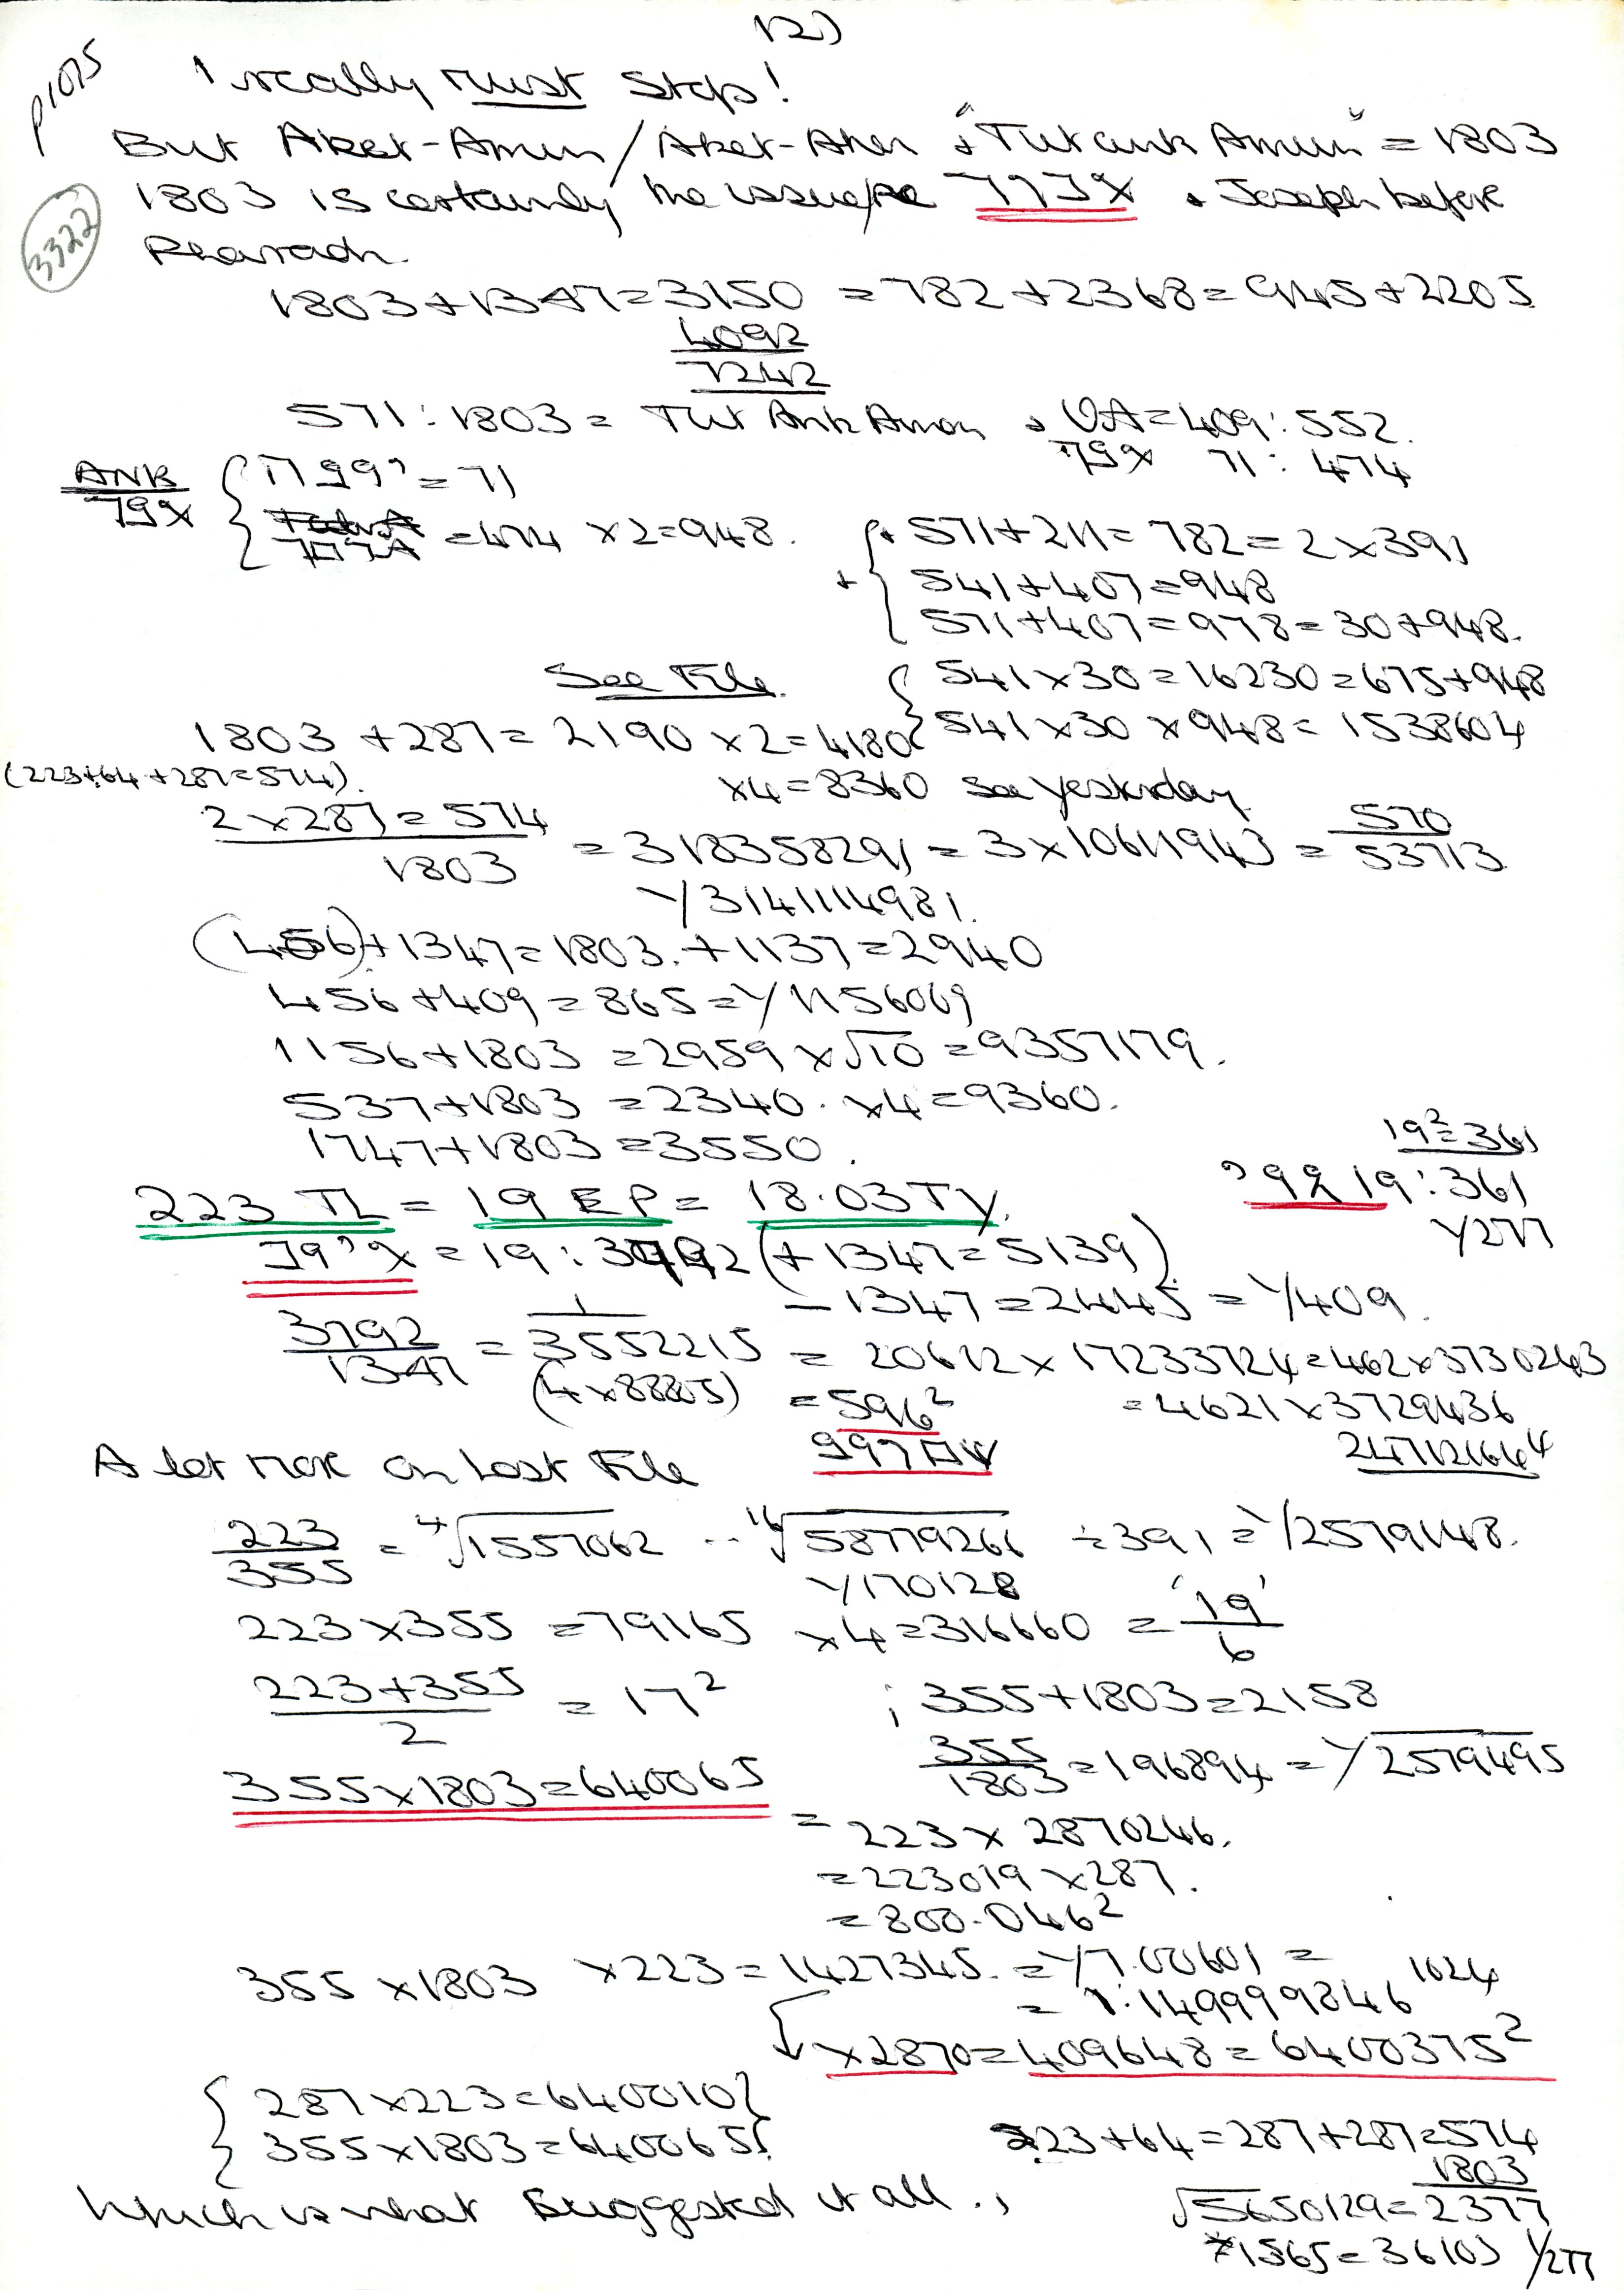 12)
p1075
I really must stop!
But Aket-Amun/Aket-Aten + "Tutank Amun" = 1803
1803 is certainly the issue/re + Joseph before
3322
Pharaoh.
1803+1347=3150 =782+2368=945+2205
4092
7242
571:1803= Tut Ank Amon + VA=409:552.
71:474
ANK
=71
=474 ×2=948.
571+211=782=2×391
541+407=948
571+407=978=30+948.
See File.
541×30=16230=675+948
1803 +287=2190 ×2=4180
541×30×948=1538604
(223+64+287=574).
×4=8360 See yesterday.
2×287=574
1803
= 318358291=3×10611943=
570
53713
1/3141114981.
(456)+1347=1803.+1137=2940
456+409=865=1/1156069
1156+1803=2959×√10=9357179.
537+1803=2340. ×4=9360.
1747+1803=3550.
19²=361
19:361
223 TL = 19 EP= 18.03TY.
1/277
(+1347=5139)
-1347=2445=1/409.
3792
1347
=
1
3552215
= 20612×17233724=462×3730243
(4×88805)
=596²
=4621×3729436
A lot more on Last File
223
355
= ⁴√1557062 -- ¹⁶√58779266 ÷391=1/2579148.
1/170128
223×355=79165 ×4=316660 =
'19'
6
223+355
2
= 17²
; 355+1803=2158
355
1803
=196894=1/√2579495
355×1803=640065
= 223×2870246.
=223019×287.
=800.046²
355×1803 ×223=1427345. =1/7.00601=
1024
= 1:1499999846
×2870=409648=6400375²
287×223=640010
355×1803=640065
223+64=287+287=574
1803
Which is what suggested it all.,
√5650129=2377
*1565=36103 1/277